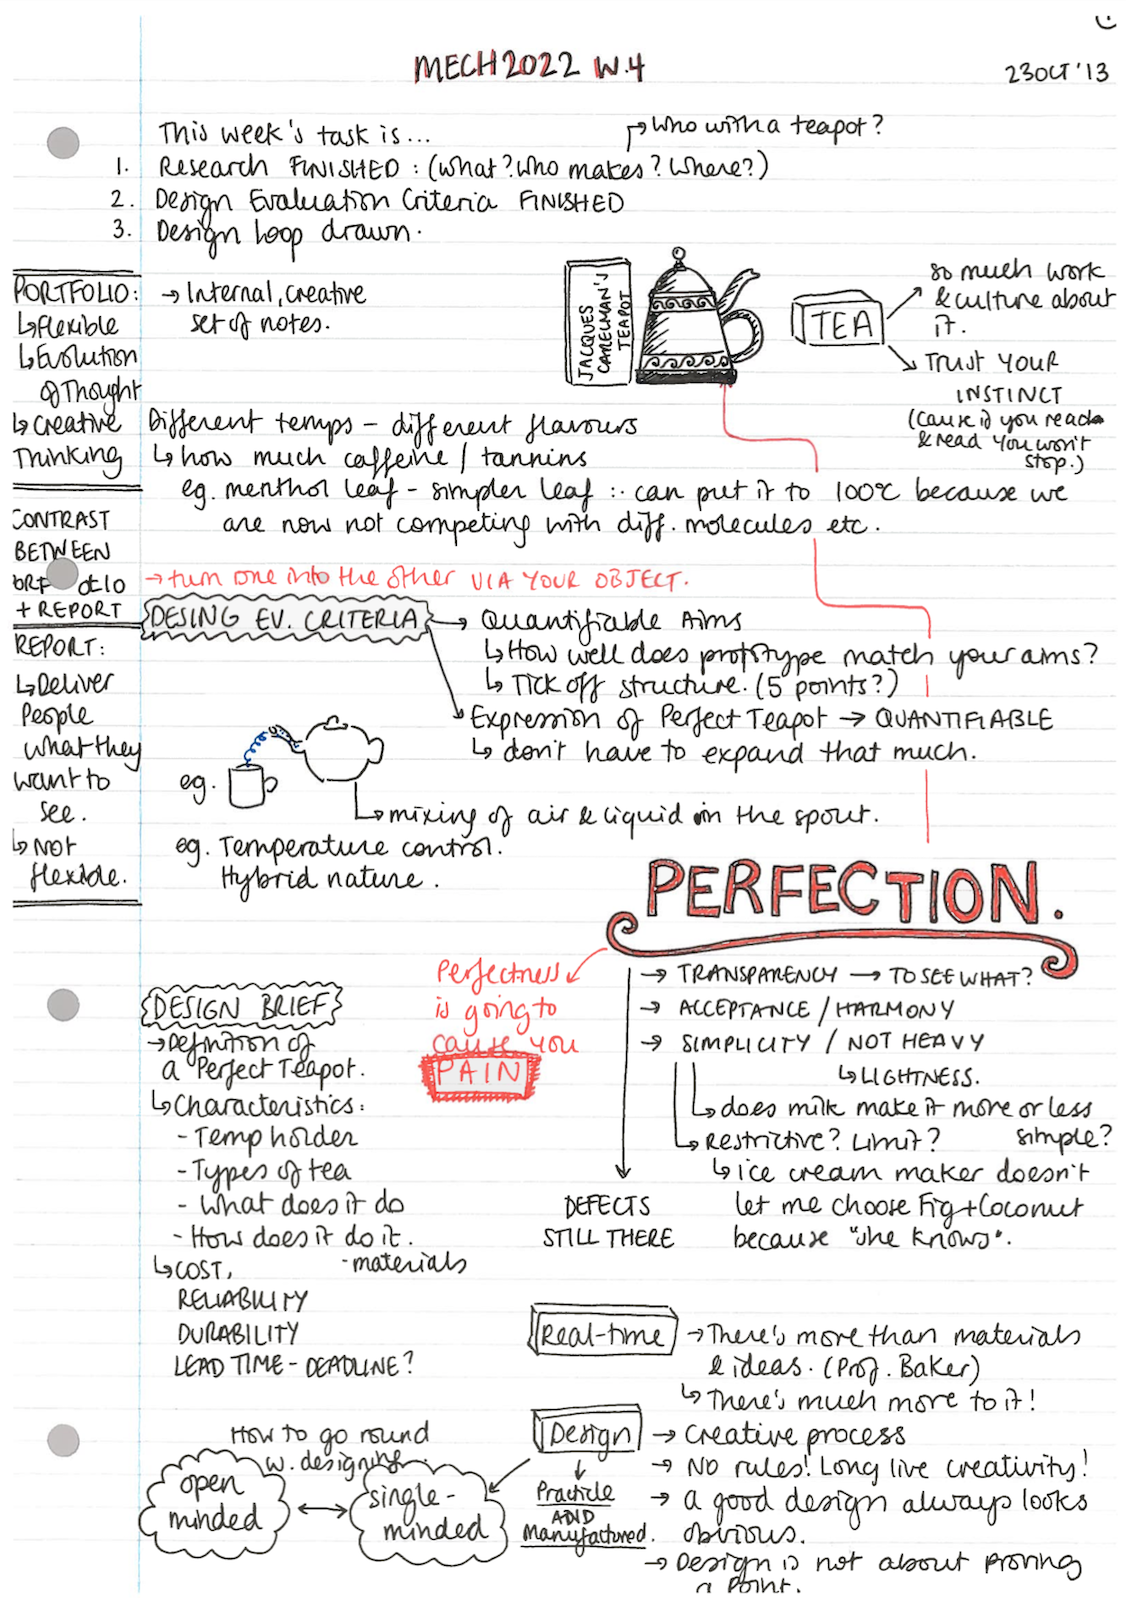 MECH2022 W.4
23OCT'13
This week's task is...
→ Who with a teapot?
1. Research FINISHED : (What? Who makes? Where?)
2. Design Evaluation Criteria FINISHED
3. Design loop drawn.
PORTFOLIO:
↳ flexible
↳ Evolution
of Thought
↳ creative
Thinking
→ Internal, creative
set of notes.
JACQUES
CARELMAN'S
TEAPOT
TEA
so much work
& culture about
it.
TRUST YOUR
INSTINCT
(Cause if you reach
& read you won't
stop.)
Different temps - different flavours
↳ how much caffeine / tannins
eg. menthol leaf - simpler leaf ∴ can put it to 100°C because we
are now not competing with diff. molecules etc.
CONTRAST
BETWEEN
+ REPORT
→ turn one into the other VIA YOUR OBJECT.
REPORT:
↳ Deliver
People
what they
want to
see.
↳ Not
flexible.
DESING EV. CRITERIA
→ Quantifiable Aims
↳ How well does prototype match your aims?
↳ TICK OFF structure. (5 points?)
Expression of Perfect Teapot → QUANTIFIABLE
↳ don't have to expand that much.
eg.
mixing of air & liquid in the spout.
eg. Temperature control.
Hybrid nature.
PERFECTION.
Perfectness
is going to
cause you
PAIN
→ TRANSPARENCY → TO SEE WHAT?
→ ACCEPTANCE / HARMONY
→ SIMPLICITY / NOT HEAVY
↳ LIGHTNESS.
does milk make it more or less
simple?
Restrictive? Limit?
↳ ice cream maker doesn't
let me choose Fig+Coconut
because "she knows".
DEFECTS
STILL THERE
DESIGN BRIEF
→ Definition of
a Perfect Teapot.
↳ Characteristics:
- Temp holder
- Types of tea
- What does it do
- How does it do it.
- materials
↳ COST,
RELIABILITY
DURABILITY
LEAD TIME - DEADLINE?
Real-time
→ There's more than materials
& ideas. (Prof. Baker)
↳ There's much more to it!
Design
→ Creative process
→ No rules! Long live creativity!
→ a good design always looks
obvious.
→ Design is not about proving
a point.
Practicle
AND
Manufactured.
How to go round
w. designing.
open
minded
single-
minded